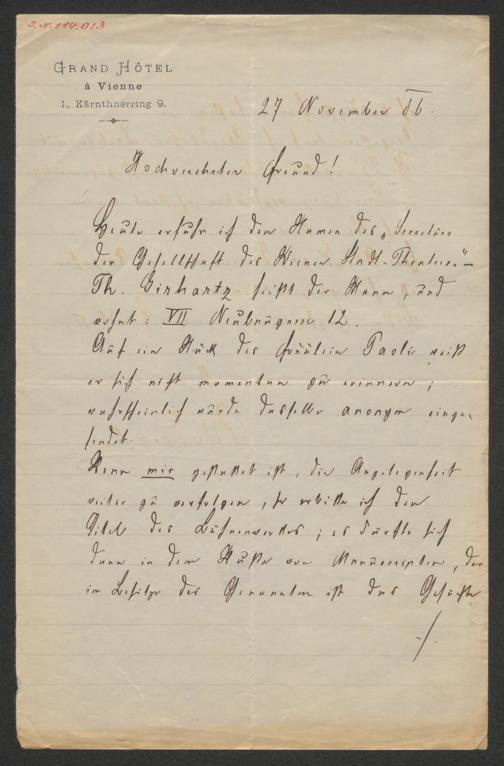 J.N. 114.013
GRAND HÔTEL
à Vienne
I., Kärnthnerring 9.
27 November 86.
Hochverehrter Freund!
Heute erfuhr ich den Namen des „Secretärs
der Gesellschaft des Wiener Stadt-Theaters"
Th. Girhartz heißt der Mann, und
wohnt: VII Neubaugasse 12.
Auf ein Stück des Fräulein Paoli weiß
er sich nicht momentan zu erinnern;
wahrscheinlich wurde dasselbe anonym einge-
sendet.
Wenn mir gestattet ist, die Angelegenheit
weiter zu verfolgen, so erbitte ich den
Titel des Bühnenwerkes; es dürfte sich
dann in dem Stoße von Manuscripten, der
im Besitze des Genannten ist das Gesuchte
./.